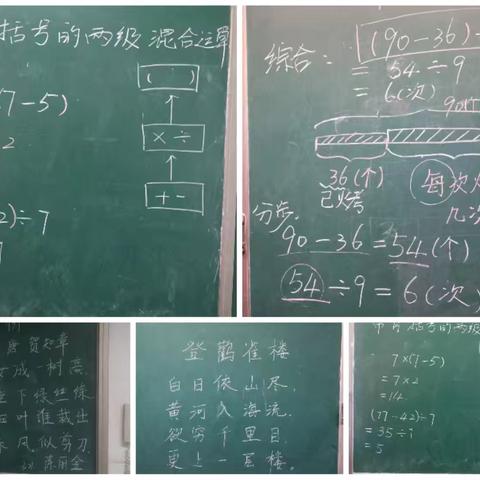 括号的两级混合运算
(7-5)
2
2)÷7
( )
×÷
+-
综合：
(90-36)
= 54÷9
= 6(次)
36(个)
已烤
每次
几次
分步：
90-36=54(个)
54÷9=6(次)
唐 贺知章
成一树高
下绿丝绦
叶谁裁出
风似剪刀
陈丽全
登鹳雀楼
白日依山尽，
黄河入海流。
欲穷千里目，
更上一层楼。
括号的两级
7×(7-5)
=7×2
=14
(77-42)÷7
=35÷7
=5